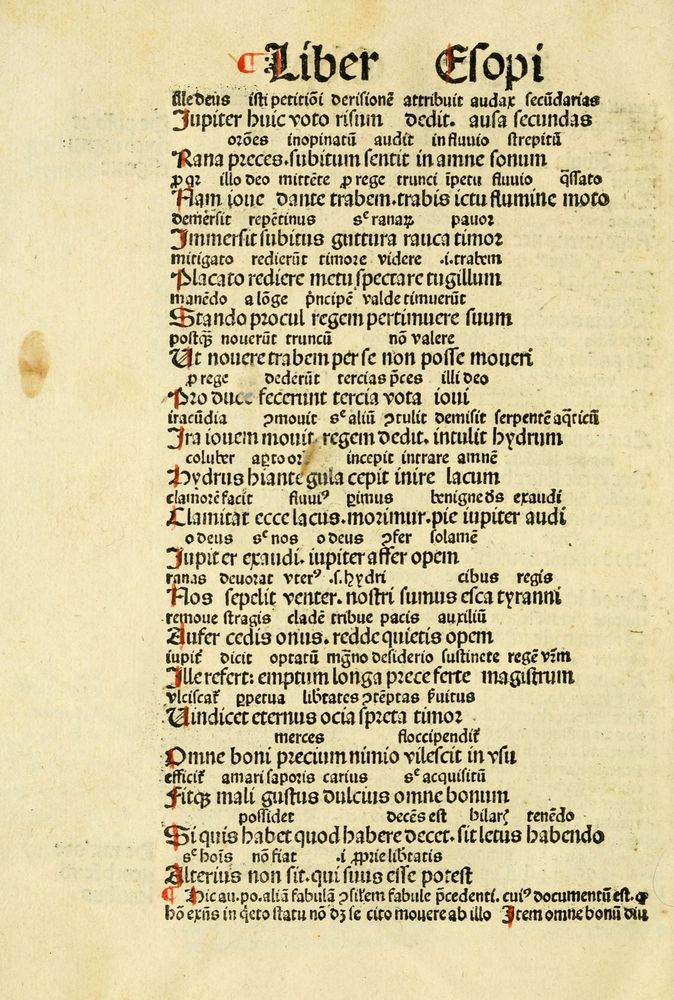 ¶ Liber Esopi
Ille deus isti petitiōi derisionē attribuit audax secūdarias
Jupiter huic voto risum dedit. ausa secundas
orōes inopinatū audit in fluvio strepitū
Rana preces. subitum sentit in amne sonum
ꝓ qꝛ illo deo mittēte ꝓ rege trunci īpetu fluvio q̄ssato
Nam ioue dante trabem. trabis ictu flumine moto
demersit repētinus sᶜ ranaꝝ pavor
Immersit subitus guttura rauca timor
mitigato redierūt timore videre .i. trabem
Placato rediere metu spectare tugillum
manēdo a lōge pͥncipē valde timuerūt
Stando procul regem pertimuere suum
postqꝫ noverūt truncū nō valere
Ut novere trabem per se non posse moveri
ꝓ rege dederūt tercias p̄ces illi deo
Pro duce fecerunt tercia vota ioui
iracūdia ꝯmouit sᶜ aliū ꝯtulit demisit serpentē aq̄ticū
Ira iouem mouit. regem dedit. intulit hydrum
coluber incepit intrare amnē
Hydrus hiante gula cepit inire lacum
clamorē facit fluuiꝰ ꝑimus benigne dꝰ exaudi
Clamitat ecce lacus. morimur. pie iupiter audi
o deus sᶜ nos o deus ꝯfer solamē
Jupiter exaudi. iupiter affer opem
ranas devorat vterꝰ .s. hydri cibus regis
Nos sepelit venter. nostri sumus esca tyranni
remove stragis cladē tribue pacis auxiliū
Aufer cedis onus. redde quietis opem
iupit̄ dicit optatū mḡno desiderio sustinete regē vr̄m
Ille refert: emptum longa prece ferte magistrum
vlciscat̄ ꝑpetua lib̄tates ꝯtēptas s̄uitus
Uindicet eternus ocia spreta timor
merces floccipendit̄
Omne boni precium nimio vilescit in vsu
efficit̄ amari saporis carius sᶜ acquisitū
Fitqꝫ mali gustus dulcius omne bonum
possidet decēs est hilarꝭ tenēdo
Si quis habet quod habere decet. sit letus habendo
sᶜ hoīs nō fiat .i ꝓprie lib̄tatis
Alterius non sit. qui suus esse potest
¶ Hic au. po. aliā fabulā ꝯsilem fabule p̄cedenti. cuiꝰ documentū est. ꝙ
hō exn̄s in q̄eto statu nō dꝫ se cito movere ab illo Item omne bonū diu